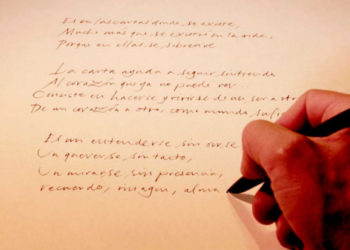 Es en las cartas donde, se escribe,
Mucho más que se escribe en la vida,
Porque en ellas, se sobrevive
La carta ayuda a seguir, sintiendo
Al corazón que ya no puede ver...
Consiste en hacerse y vivirse de un ser a otro
De un corazón a otro, como
Es un entenderse, sin oirse
Un quererse, sin tacto,
Un mirarse, sin presencia,
recuerdo, imagen, alma